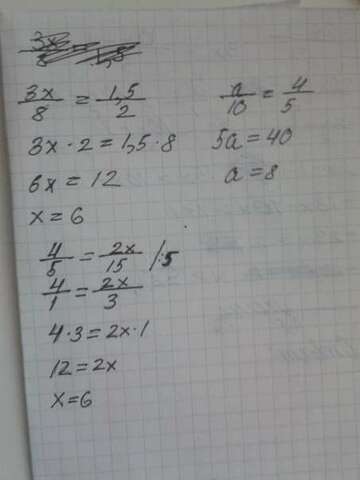 3x/8 = 1,5/2
3x · 2 = 1,5 · 8
6x = 12
x = 6
4/5 = 2x/15 /·5
4/1 = 2x/3
4·3 = 2x·1
12 = 2x
x = 6
a/10 = 4/5
5a = 40
a = 8